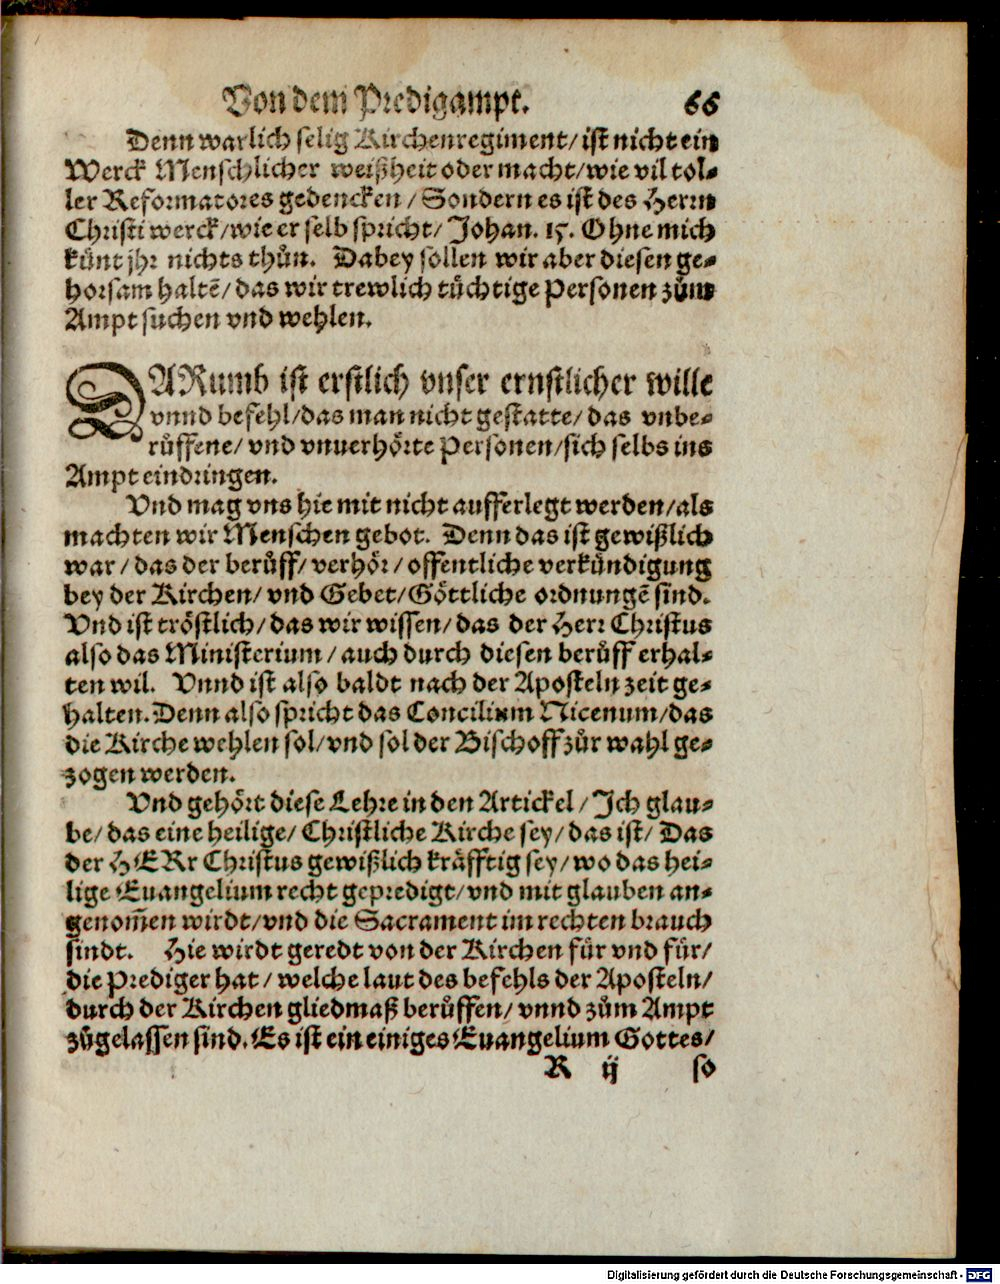 Von dem Predigampt. 66
Denn warlich selig Kirchenregiment/ ist nicht ein
Werck Menschlicher weißheit oder macht/ wie vil tol-
ler Reformatores gedencken / Sondern es ist des Herrn
Christi werck/ wie er selb spricht/ Johan. 15. Ohne mich
künt jhr nichts thůn. Dabey sollen wir aber diesen ge-
horsam haltē/ das wir trewlich tüchtige Personen zům
Ampt suchen vnd wehlen.
DARumb ist erstlich vnser ernstlicher wille
vnnd befehl/ das man nicht gestatte/ das vnbe-
růffene/ vnd vnuerhörte Personen/ sich selbs ins
Ampt eindringen.
Vnd mag vns hie mit nicht aufferlegt werden/ als
machten wir Menschen gebot. Denn das ist gewißlich
war / das der berůff/ verhör/ offentliche verkündigung
bey der Kirchen/ vnd Gebet/ Göttliche ordnungē sind.
Vnd ist tröstlich/ das wir wissen/ das der Herr Christus
also das Ministerium / auch durch diesen berůff erhal-
ten wil. Vnnd ist also baldt nach der Aposteln zeit ge-
halten. Denn also spricht das Concilium Nicenum/ das
die Kirche wehlen sol/ vnd sol der Bischoff zůr wahl ge-
zogen werden.
Vnd gehört diese Lehre in den Artickel / Ich glau-
be/ das eine heilige/ Christliche Kirche sey/ das ist/ Das
der HERr Christus gewißlich kräfftig sey/ wo das hei-
lige Euangelium recht gepredigt/ vnd mit glauben an-
genom̄en wirdt/ vnd die Sacrament im rechten brauch
sindt. Hie wirdt geredt von der Kirchen für vnd für/
die Prediger hat / welche laut des befehls der Aposteln/
durch der Kirchen gliedmaß berůffen/ vnnd zům Ampt
zůgelassen sind. Es ist ein einiges Euangelium Gottes/
R ij so
Digitalisierung gefördert durch die Deutsche Forschungsgemeinschaft - DFG